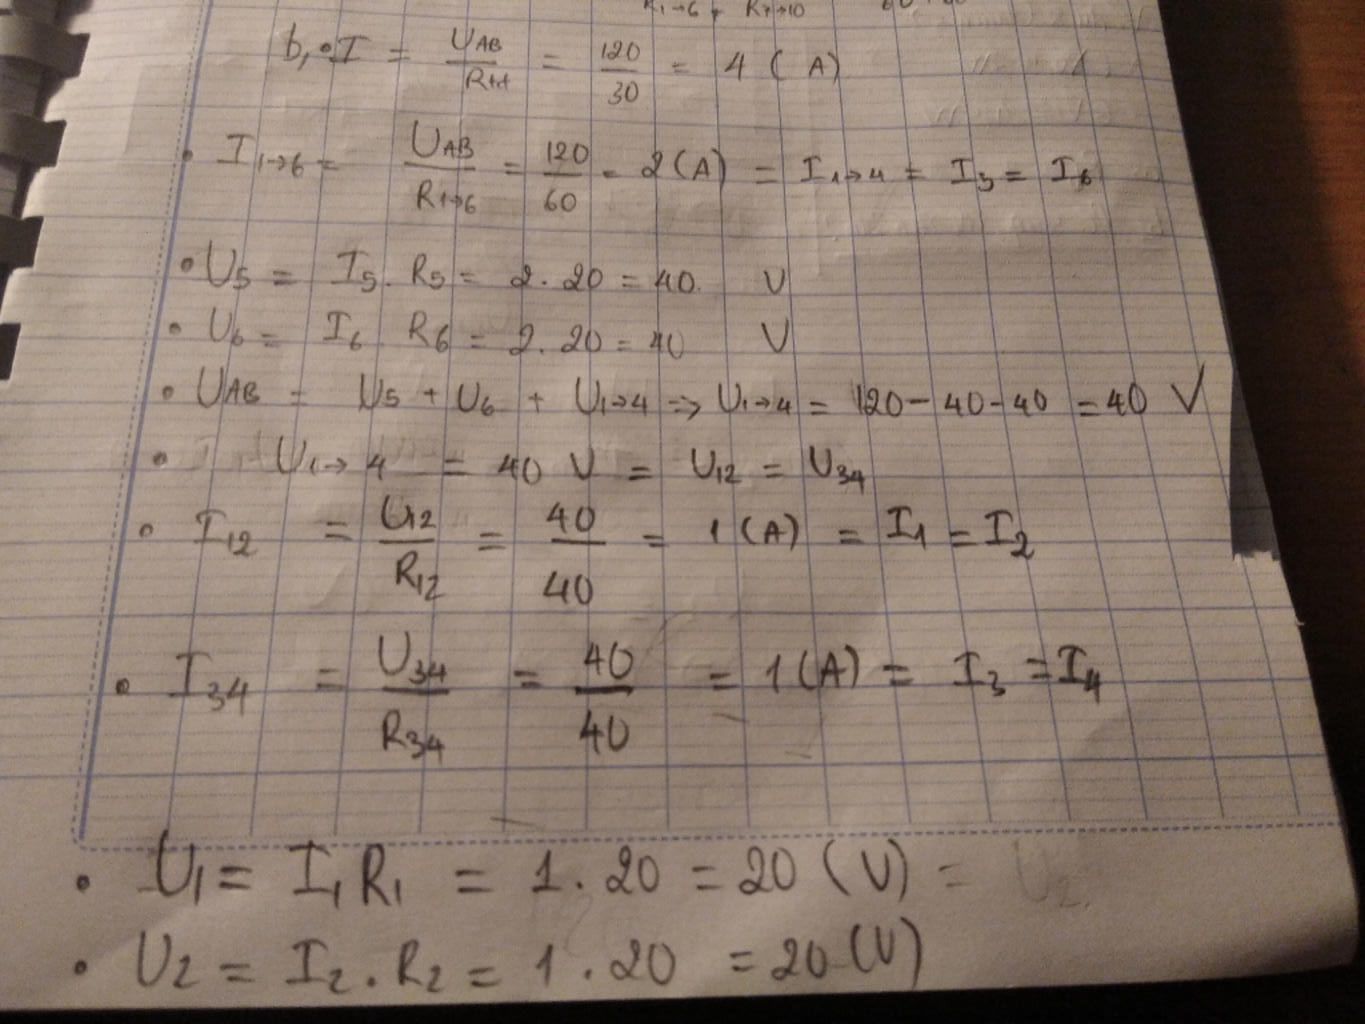 R1→6 + R7→10
b, • I = UAB / Rtđ = 120 / 30 = 4 (A)
• I1→6 = UAB / R1→6 = 120 / 60 = 2 (A) = I1→4 = I5 = I6
• U5 = I5. R5 = 2. 20 = 40. V
• U6 = I6 R6 = 2. 20 = 40 V
• UAB = U5 + U6 + U1→4 => U1→4 = 120 - 40 - 40 = 40 V
• U1→4 = 40 V = U12 = U34
• I12 = U12 / R12 = 40 / 40 = 1 (A) = I1 = I2
• I34 = U34 / R34 = 40 / 40 = 1 (A) = I3 = I4
• U1 = I1 R1 = 1. 20 = 20 (V) = U2
• U2 = I2. R2 = 1. 20 = 20 (V)